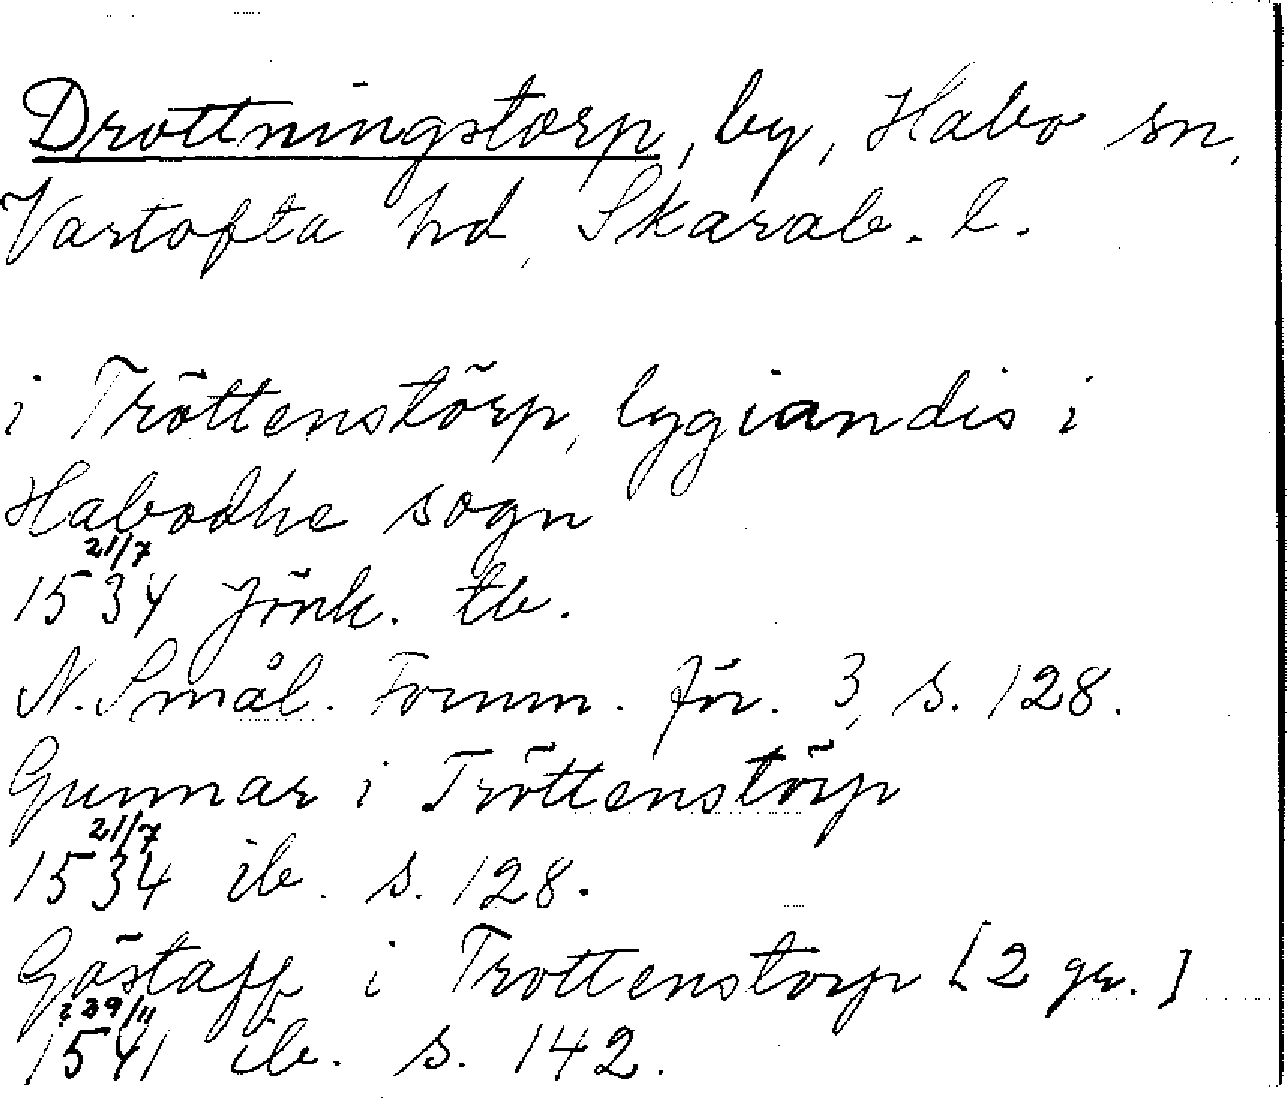 Drottningstorp, by, Habo sn,
Vartofta hd, Skarab. l.
i Tröttenstörp, lygiandis i
Habodhe sogn
21/7
1534 Jönk. tb.
N. Smål. Fornm. för. 3, s. 128.
Gunnar i Tröttenstörp
21/7
1534 ib. s. 128.
Göstaff i Trottenstorp [2 gr.]
29/11
1541 ib. s. 142.